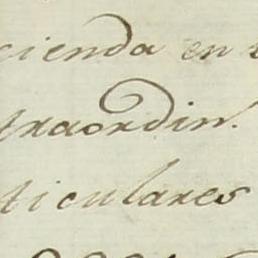 cienda en
traordin.
ticulares